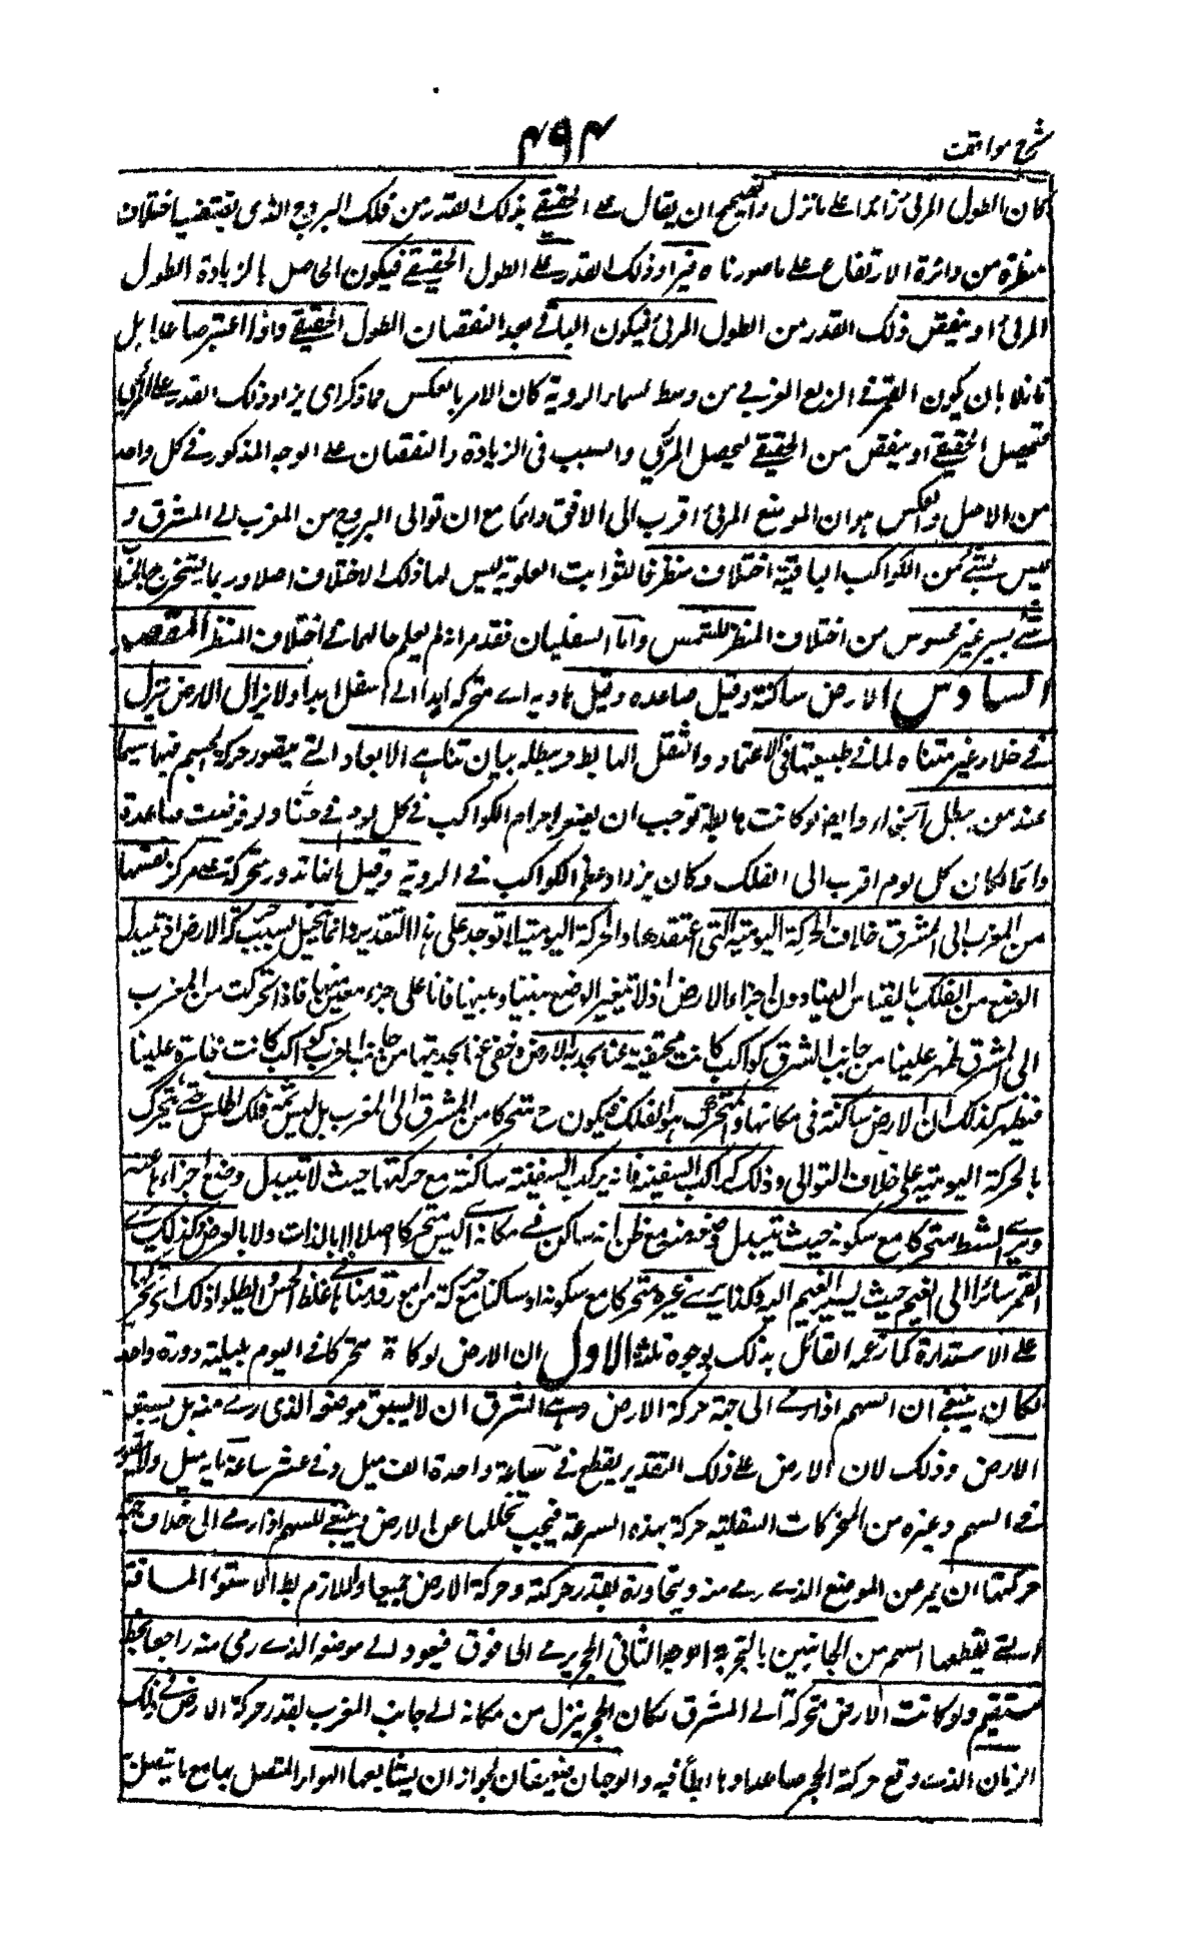 شرح مواقف
۴۹۴
كان الطول المرئي زائدا على ما نزل والصحيح ان يقال على الحقيقي بذلك القدر من فلك البروج الذى يقتضيه اختلاف
منظره من دائرة الارتفاع على ما صورناه فيزاد ذلك القدر على الطول الحقيقي فيكون الحاصل بالزيادة الطول
المرئي او ينقص ذلك القدر من الطول المرئي فيكون الباقي بعد النقصان الطول الحقيقي واذا اعتبر صاعدا بل
نازلا بان يكون القمر في الربع الغربي من وسط سماء الروية كان الامر بالعكس مما ذكر اى يزاد ذلك القدر على المرئي
فتحصل الحقيقي او ينقص من الحقيقي ليحصل المرئي والسبب فى الزيادة والنقصان على الوجه المذكور في كل واحد
من الاصل والعكس هو ان الموضع المرئي اقرب الى الافق دائما مع ان توالى البروج من المغرب الى المشرق و
ليس لشئ من الكواكب الباقية اختلاف منظر فالثوابت العلوية ليس لها ذلك الاختلاف اصلا وربما يستخرج بالحساب
شئ يسير غير محسوس من اختلاف المنظر للشمس واما السفليان فقد مر انه لم يعلم حالهما في اختلاف المنظر المقصد
السادس الارض ساكنة وقيل صاعده وقيل هاويه اى متحركه ابدا الى اسفل ابدا ولا يزال الارض تنزل
في خلاء غير متناه لما في طبيعتها من الاعتماد والثقل الهابط ويبطله بيان تناهي الابعاد التي يتصور حركة الجسم فيها سيما
عند من يبطل وايضا لو كانت هابطة لوجب ان يصغر اجرام الكواكب في كل يوم في حسنا ولو فرضت صاعدة
دائما لكان كل يوم اقرب الى الفلك وكان يزداد عظم الكواكب في الروية وقيل انها تدور متحركة على مركز نفسها
من المغرب الى المشرق خلاف الحركة اليومية التى اعتقدها والحركة اليومية لا توجد على هذا التقدير وانما تتخيل بسبب حركة الارض اذ يتبدل
الوضع من الفلك بالقياس الينا دون اجزاء الارض اذ لا يتغير الوضع بيننا وبينها فانا على جزء معين منها فاذا تحركت من المغرب
الى المشرق ظهر علينا من جانب الشرق كواكب كانت مختفية عنا بحدبة الارض وخفي عنا بحدبتها من جانب الغرب كواكب كانت ظاهرة علينا
فيظن كذلك ان الارض ساكنة فى مكانها والمتحرك هو الفلك فيكون ح متحركا من المشرق الى المغرب بل ليس ثمه فلك اطلس حتى يتحرك
بالحركة اليومية على خلاف التوالى وذلك كراكب السفينة فانه يرى السفينة ساكنة مع حركتها حيث لا يتبدل وضع اجزاءها منه
ويرى الشط متحركا مع سكونه حيث يتبدل وضعه منه مع ظن انه ساكن في مكانه اى ليس متحركا اصلا لا بالذات ولا بالعرض كذلك يرى
القمر سائرا الى الغيم حيث يسير الغيم اليه وكذا يرى غيره متحركا مع سكونه او ساكنا مع حركته من امور قدمناها في غلط الحس وابطلوا ذلك اى تحركها
على الاستدارة كما زعمه القائل بذلك بوجوه ثلثة الاول ان الارض لو كانت متحركا في اليوم بليلته دورة واحدة
لكان ينبغي ان السهم اذا رمي الى جهة حركة الارض وهي الشرق ان لا يسبق موضعه الذى رمي منه بل يسبقه
الارض وذلك لان الارض على ذلك التقدير يقطع في ساعة واحدة الف ميل وفي عشر ساعة مايه ميل ولا يتصور
في السهم وغيره من المحركات السفلية حركة بهذه السرعة فيجب تخلفها عن الارض وينبغي للسهم اذا رمي الى خلاف جهة
حركتها ان يمر عن الموضع الذى رمي منه ويتجاوزه بقدر حركته وحركة الارض جميعا واللازم بط الاستواء المسافة
التي يقطعها السهم من الجانبين بالتجربة الوجه الثانى الحجر يرمى الى فوق فيعود الى موضعه الذى رمى منه راجعا بخط
مستقيم ولو كانت الارض متحركة الى المشرق لكان الحجر ينزل من مكانه الى جانب المغرب بقدر حركة الارض في ذلك
الزمان الذى وقع حركة الحجر صاعدا وهابطا فيه والوجهان ضعيفان لجواز ان يشايعها الهواء المتصل بها مع ما يتصل